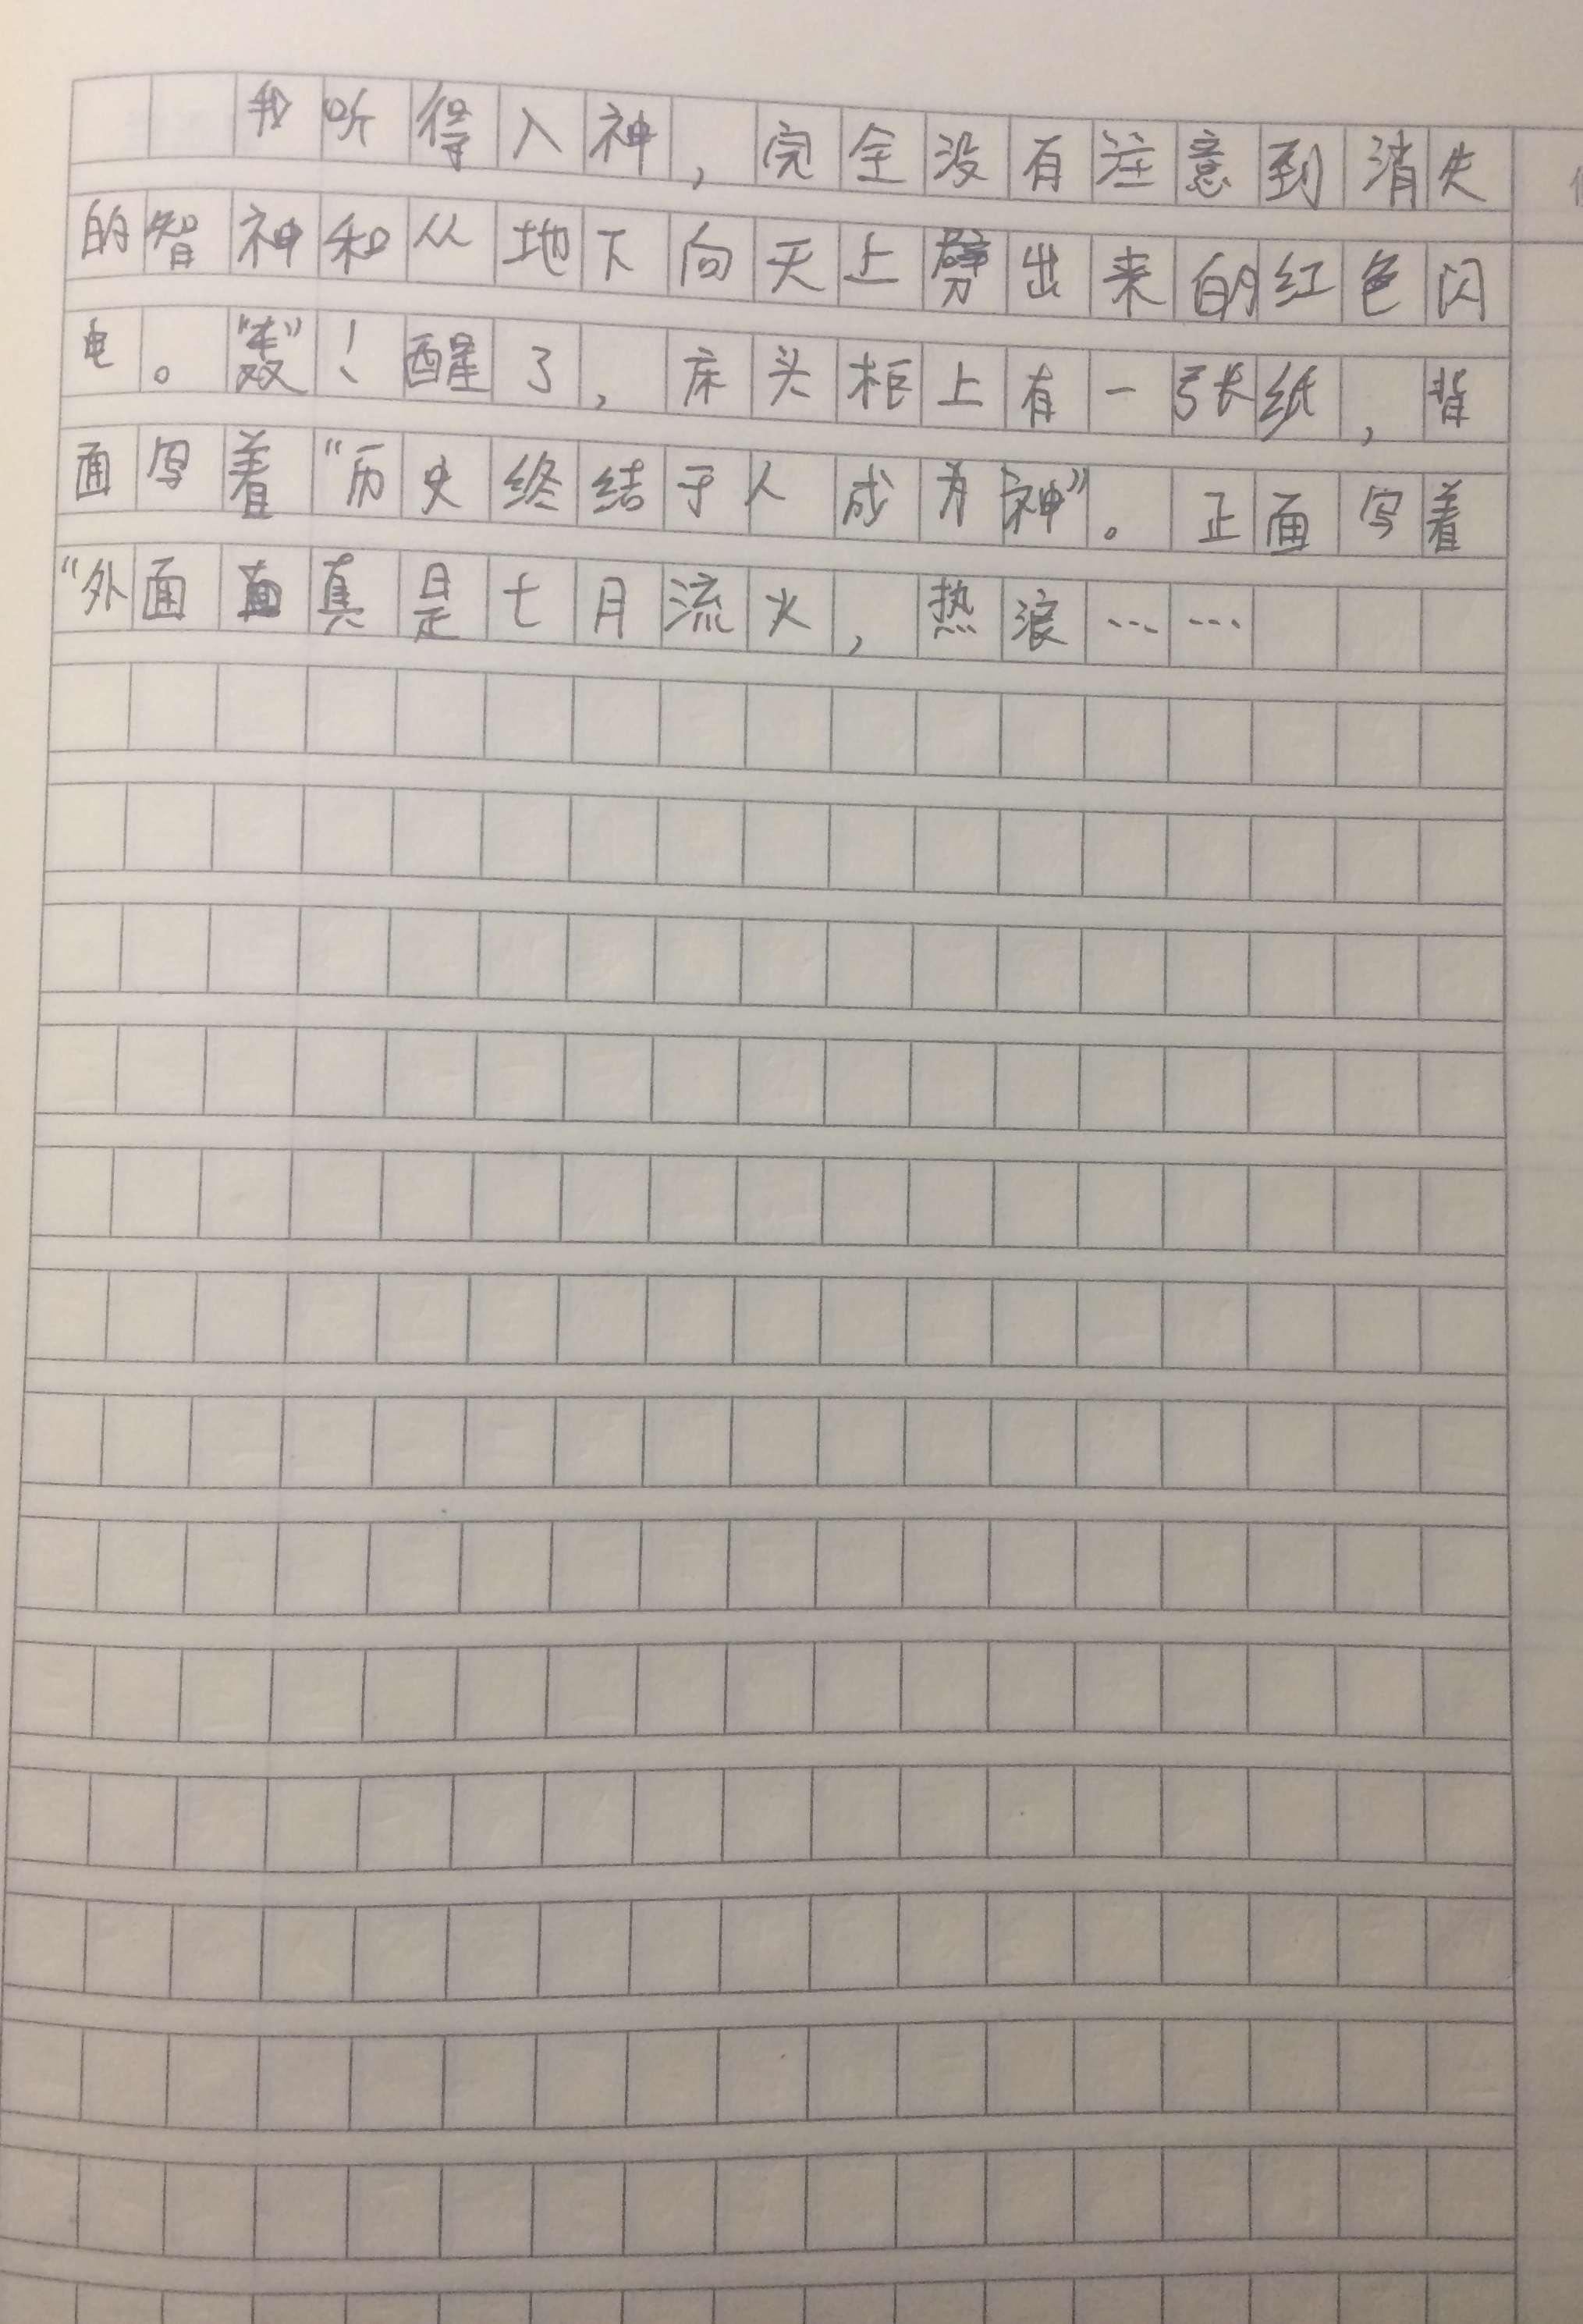 我听得入神，完全没有注意到消失
的智神和从地下向天上劈出来的红色闪
电。！醒了，床头柜上有一张纸，背
面写着“历史终结于人成为神”。正面写着
“外面真是七月流火，热浪……